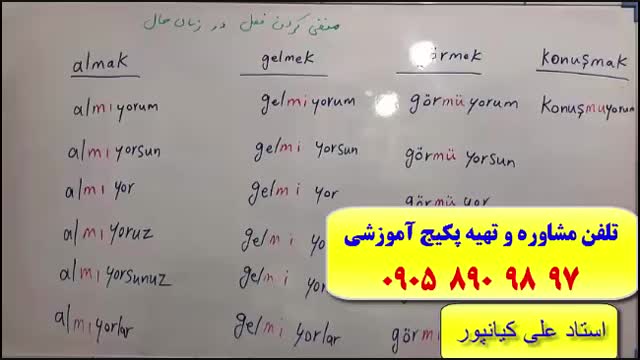 منفی کردن فعل در زبان حال
almak gelmek görmek konuşmak
almıyorum gelmiyorum görmüyorum konuşmuyorum
almıyorsun gelmiyorsun görmüyorsun
almıyor gelmiyor görmüyor
almıyoruz gelmi
almıyorsunuz gelmi
almıyorlar gelmiyorlar
تلفن مشاوره و تهیه پکیج آموزشی
۰۹۰۵ ۸۹۰ ۹۸ ۹۷
استاد علی کیانپور